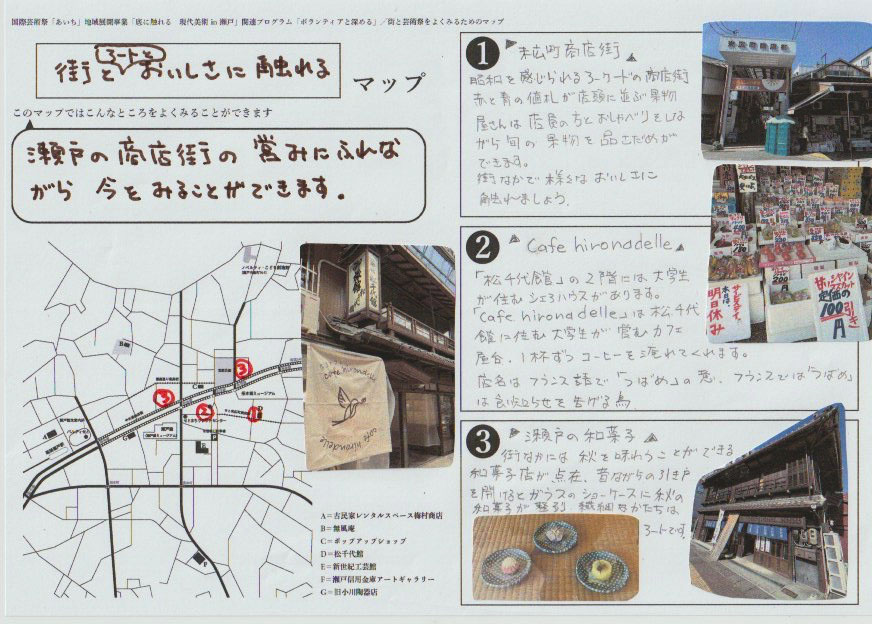 国際芸術祭「あいち」地域展開事業「底に触れる 現代美術 in 瀬戸」関連プログラム「ボランティアと深める」／街と芸術祭をよくみるためのマップ
街とアートとおいしさに触れる
マップ
このマップではこんなところをよくみることができます
瀬戸の商店街の営みにふれな
がら 今をみることができます.
1 末広町商店街
昭和を感じられるアーケードの商店街
赤と青の値札が店頭に並ぶ果物
屋さんは店員の方とおしゃべりをしな
がら旬の果物を品さだめが
できます。
街なかで様々なおいしさに
触れましょう.
2 Cafe hironadelle
「松千代館」の2階には大学生
が住むシェアハウスがあります。
「Cafe hironadelle」は松千代
館に住む大学生が営むカフェ
屋台. 1杯ずつコーヒーを淹れてくれます。
店名はフランス語で「つばめ」の意. フランスでは「つばめ」
は良い知らせを告げる鳥
3 瀬戸の和菓子
街なかには秋を味わうことができる
和菓子店が点在. 昔ながらの引き戸
を開けるとガラスのショーケースに秋の
和菓子が整列. 繊細なかたちは
アートです.
A=古民家レンタルスペース梅村商店
B=無風庵
C=ポップアップショップ
D=松千代館
E=新世紀工芸館
F=瀬戸信用金庫アートギャラリー
G=旧小川陶器店
A
B
C
C
D
E
F
G
1
2
3
3
cafe hironadelle
シャイン
マスカット
定価の
100
円
引き
本日は
明日休み